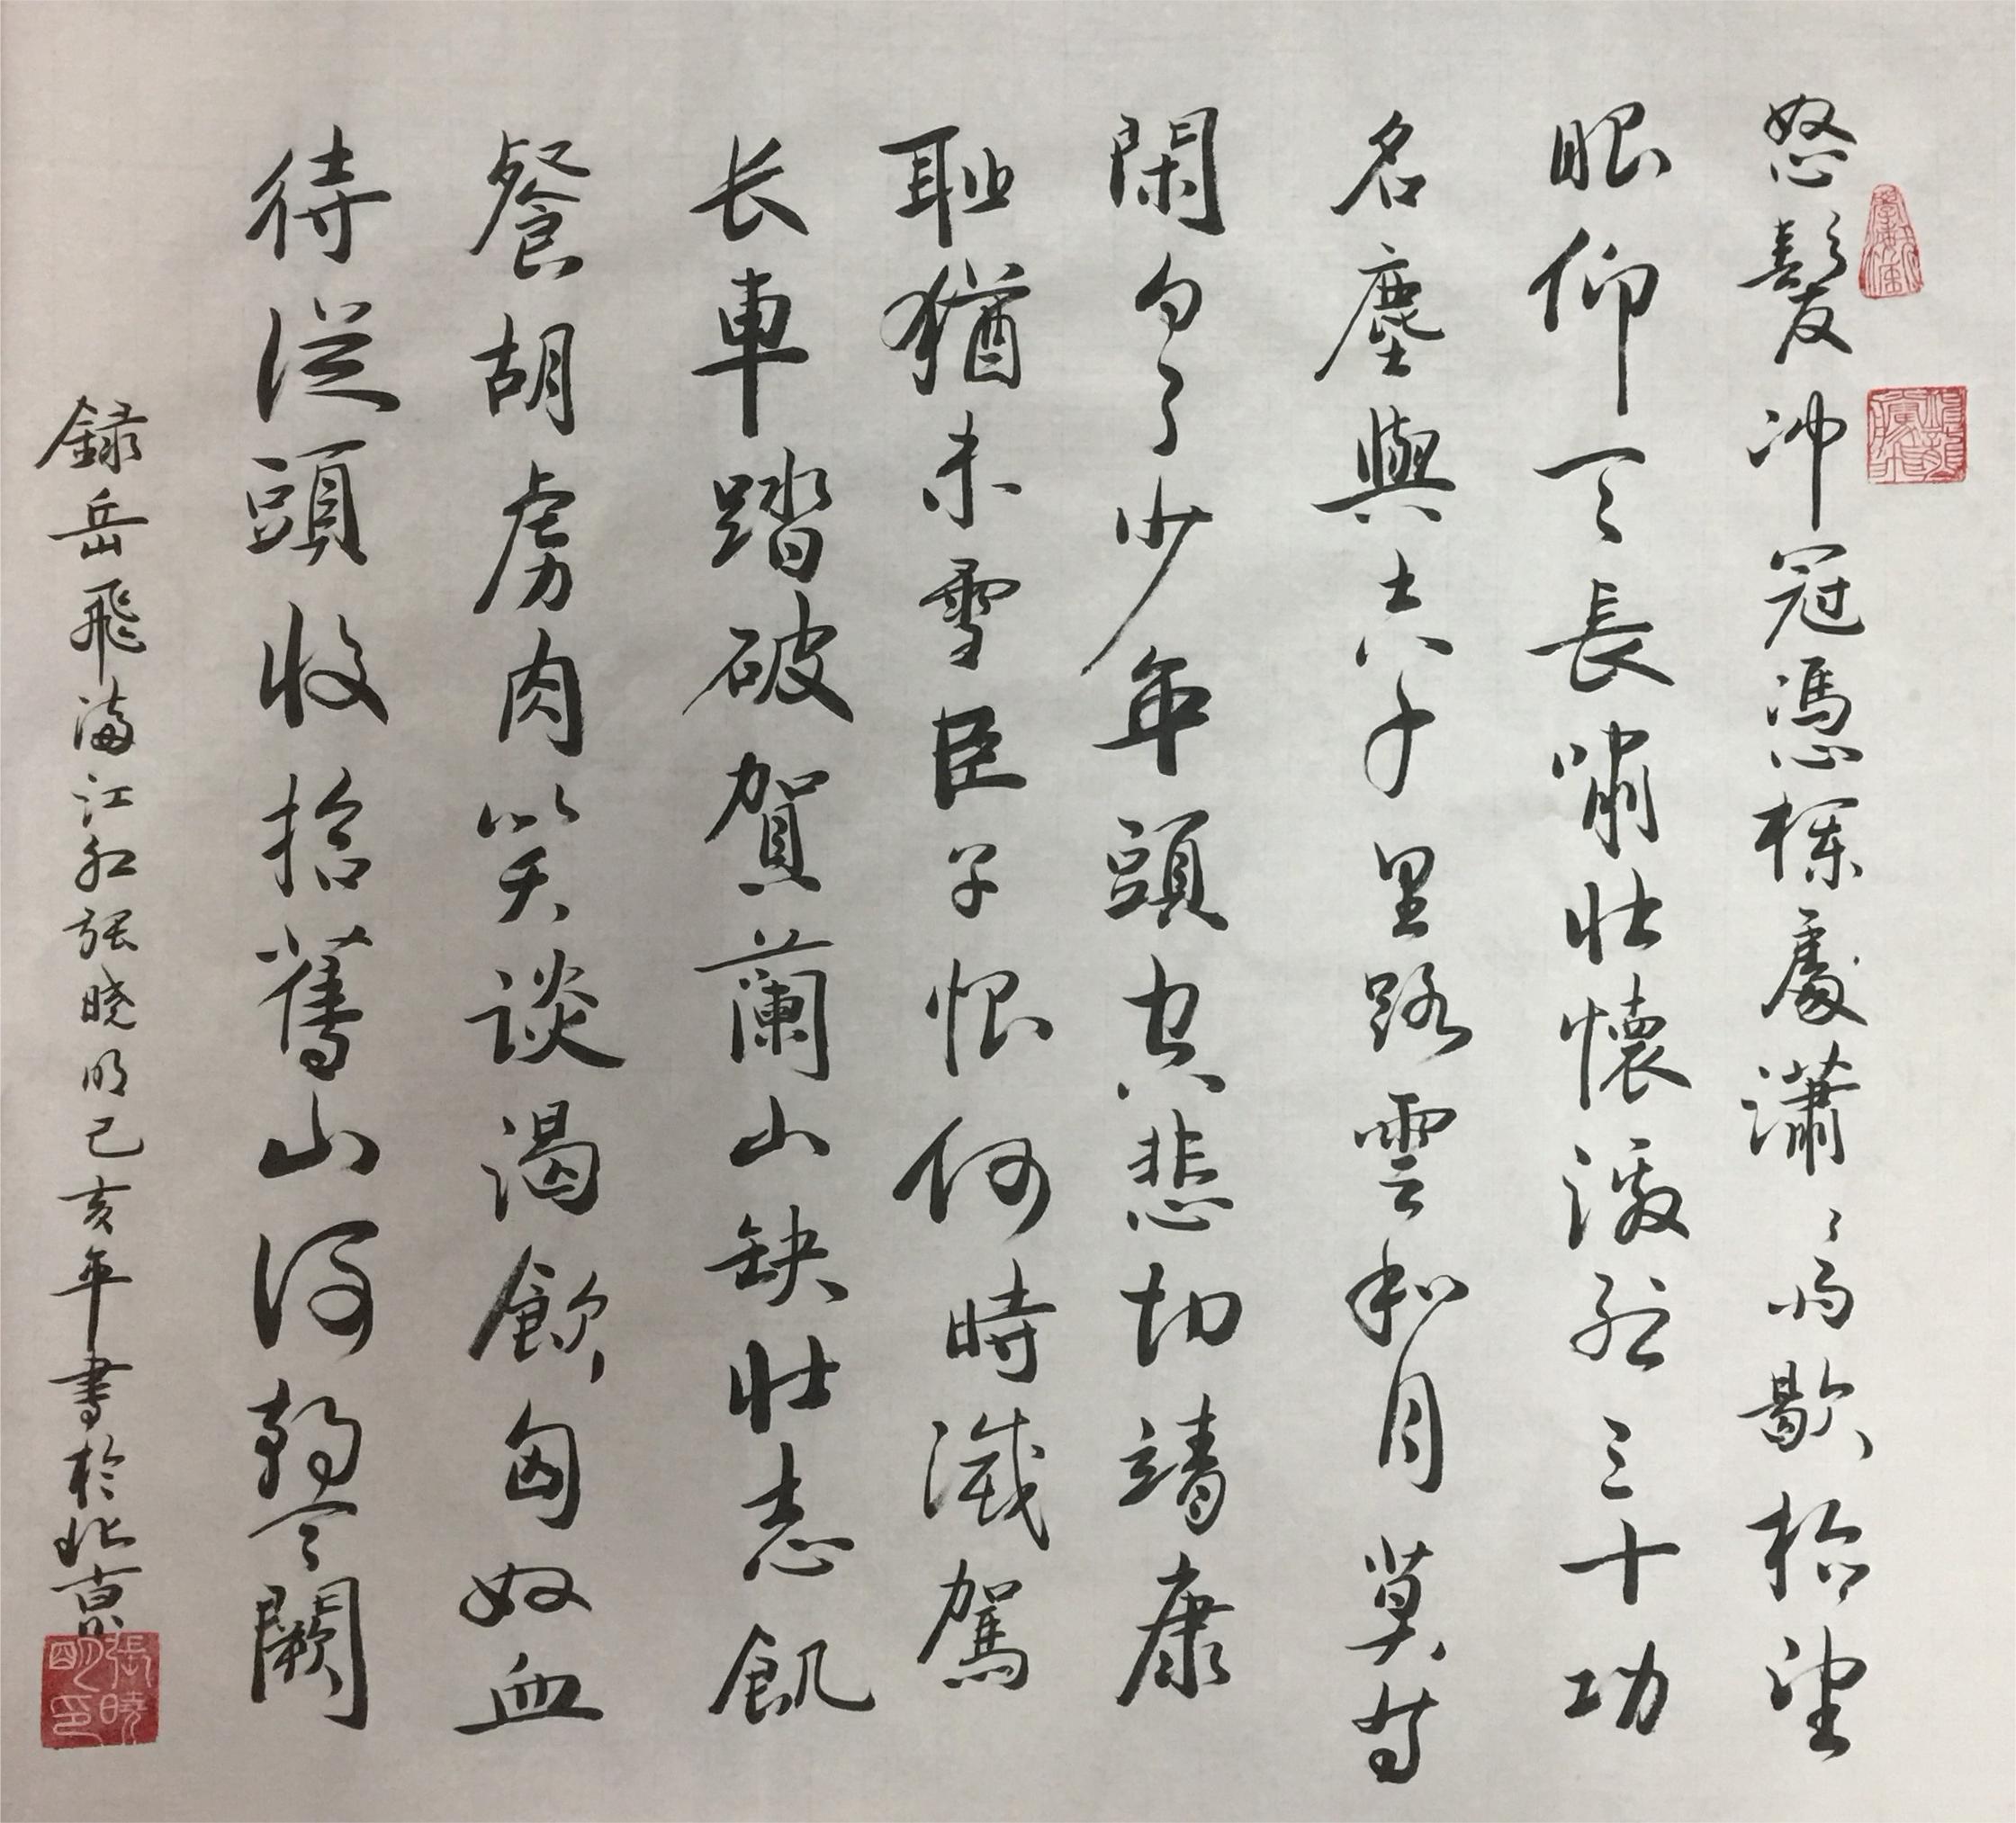 怒髮冲冠憑欄處瀟々雨歇抬望
眼仰天長嘯壯懷激烈三十功
名塵與土八千里路雲和月莫等
閑白了少年頭空悲切靖康
耻猶未雪臣子恨何時滅駕
长車踏破賀蘭山缺壯志飢
餐胡虜肉笑談渴飲匈奴血
待從頭收拾舊山河朝天闕
録岳飛滿江紅張曉明己亥年書於北京
張曉明印